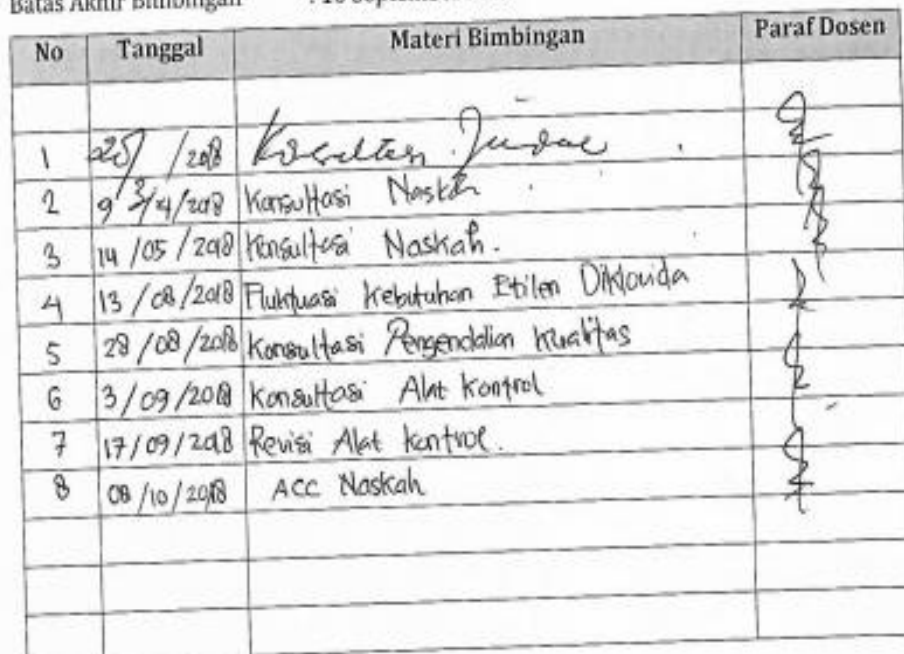 Batas Akhir Bimbingan
No Tanggal Materi Bimbingan Paraf Dosen
1 /2018 Judul
2 9 /4/2018 Konsultasi Naskah
3 14/05/2018 Konsultasi Naskah.
4 13/08/2018 Fluktuasi Kebutuhan Etilen Diklorida
5 28/08/2018 Konsultasi Pengendalian Kualitas
6 3/09/2018 Konsultasi Alat Kontrol
7 17/09/2018 Revisi Alat Kontrol.
8 08/10/2018 ACC Naskah